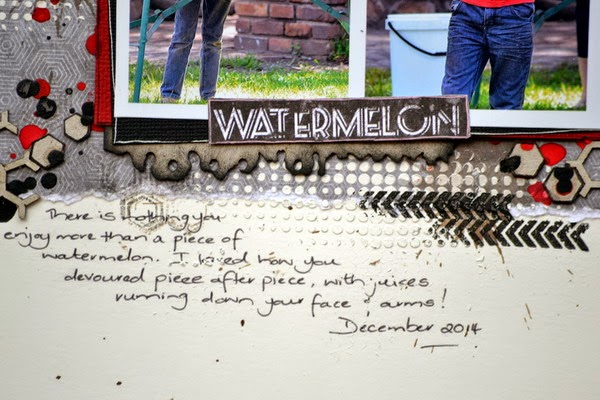 WATERMELON
There is nothing you
enjoy more than a piece of
watermelon. I loved how you
devoured piece after piece, with juices
running down your face & arms!
December 2014